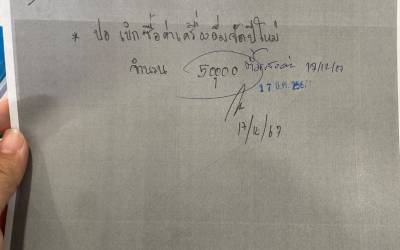 * ขอ เบิกซื้อค่าเครื่องดื่มจัดปีใหม่
จำนวน 50,000 19/12/67
17 ธ.ค. 2567
17/12/67